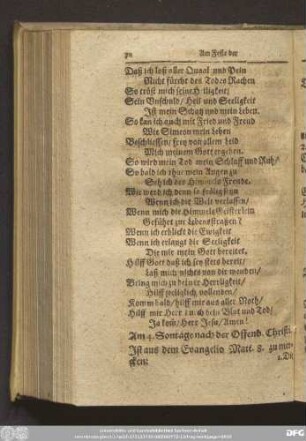 90 Am Feste der
Daß ich loß aller Quaal und Pein
Nicht fürcht des Todes Rachen
So tröst mich seine Heiligkeit;
Sein Unschuld/ Heil und Seeligkeit
Ist mein Schatz und mein Leben.
So kan ich auch mit Fried und Freud
Wie Simeon mein Leben
Beschliessen/ frey von allem Leid
Mich meinem Gott ergeben.
So wird mein Tod mein Schlaff und Ruh/
So bald ich thue mein Augen zu
Seh ich des Himmels Freude.
Wie werd ich denn so seelig seyn
Wenn ich die Welt verlassen/
Wenn mich die Himmels Geisterlein
Geführt zur Lebensstrassen?
Wenn ich erblickt die Ewigkeit
Wenn ich erlangt die Seeligkeit
Die mir mein Gott bereitet,
Hilff Gott daß ich sey stets bereit/
Laß mich nichts von dir wenden/
Bring mich zu deiner Herrligkeit/
Hilff seeliglich vollenden/
Komm bald/ hilff mir aus aller Noth/
Hilff mir Herr durch dein Blut und Tod/
Ja kom/ Herr Jesu/ Amen!
Am 4. Sontage nach der Offenb. Christi.
Ist aus dem Evangelio Matt. 8. zu mer-
cken:
1. Die